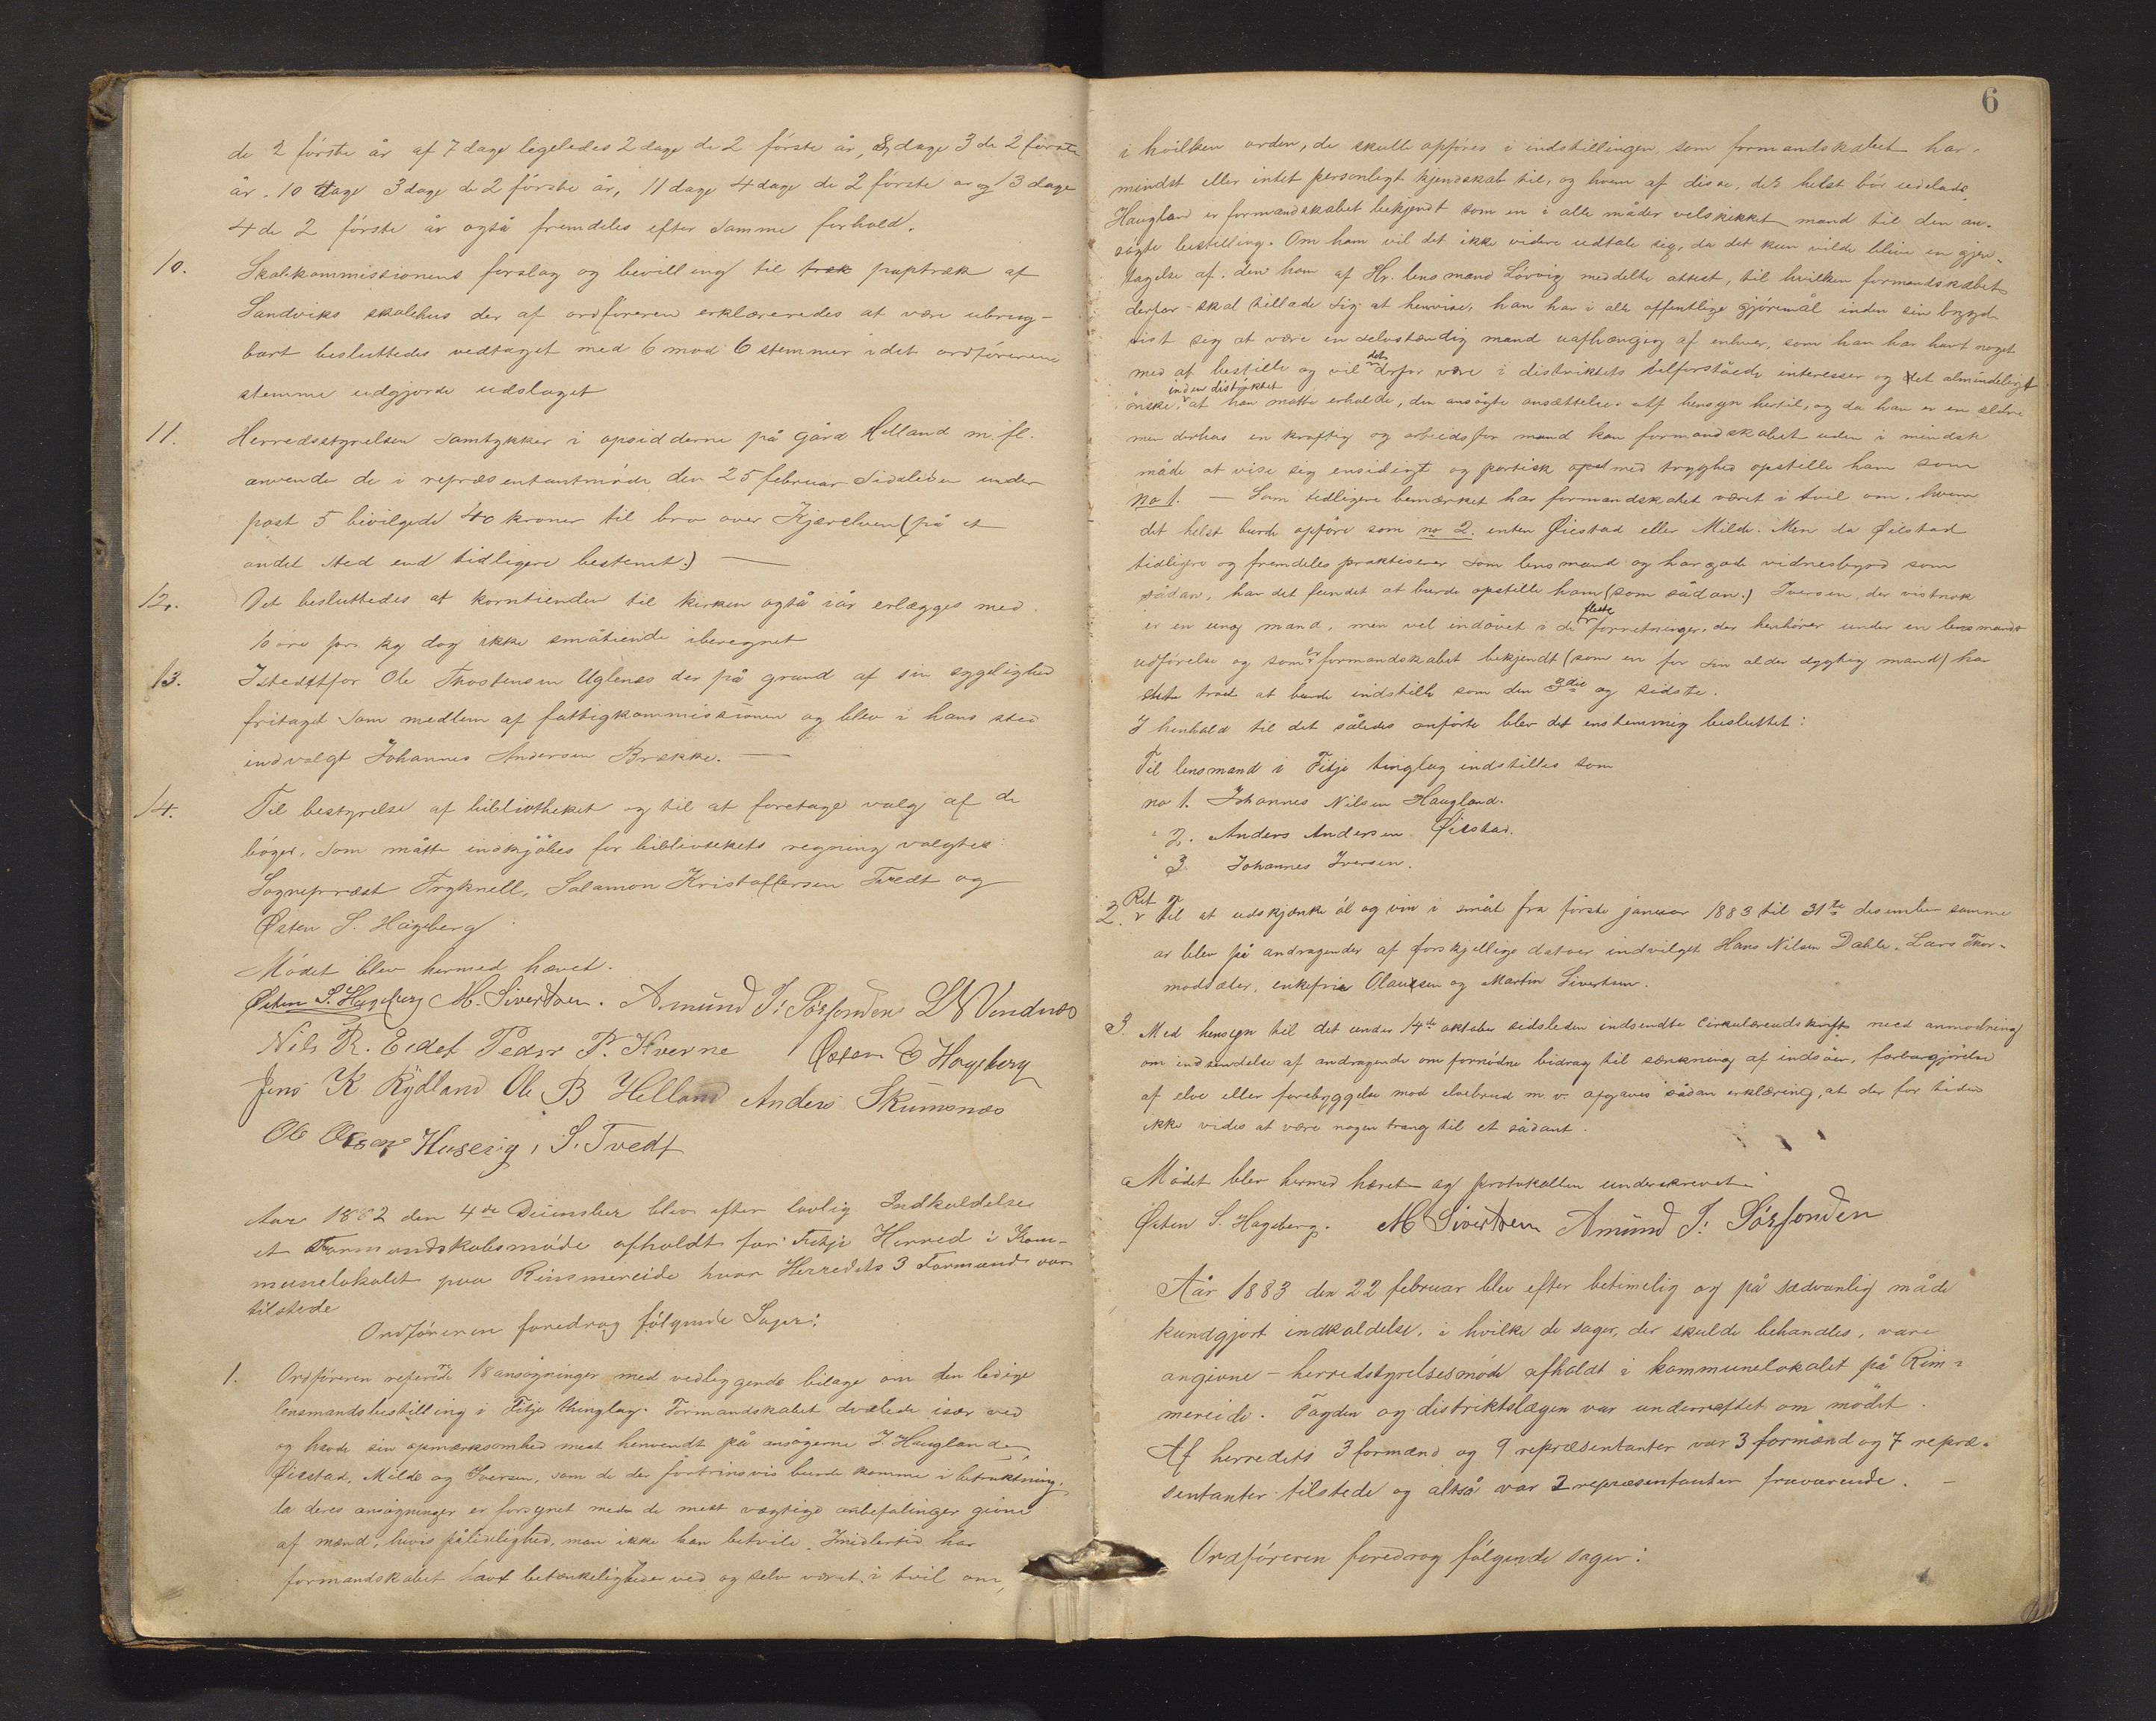 de 2 første år af 7 dage legeledes 2 dage de 2 første år, 8 dage 3 de 2 første
år. 10 dage 3 dage de 2 første år, 11 dage 4 dage de 2 første år og 3 dage
4 de 2 første år også fremdeles efter samme forhold.
10. Skolekommissionens forslag og bevilling til træk paptræk af
Sandviks skolehus der af ordføreren erklæreredes at være ubrug-
bart besluttedes vedtaget med 6 mod 6 stemmer idet ordførerens
stemme udgjorde udslaget
11. Herredsstyrelsen samtykker i opsidderne på gård Helland m. fl.
anvender de i repræsentantmøde den 25 februar sidsleden under
post 5 bevilgede 40 kroner til bro over Kjærelven (på et
andet sted end tidligere bestemt.) —
12. Det besluttedes at korntienden til kirken også iår erlægges med
10 øre pr. kg dog ikke småtiende iberegnet
13. Istedetfor Ole Thostensen Uglenes der på grund af sin sygelighed
fritaget som medlem af fattigkommissionen og blev i hans sted
indvalgt Johannes Andersen Brække. —
14. Til bestyrelse af bibliotheket og til at foretage valg af de
bøger, som måtte indkjøbes for bibliotekets regning valgtes:
Sognepræst Fryknell, Salamon Kristoffersen Tvedt og
Østen S. Hageberg
Mødet blev hermed hævet.
Østen S. Hageberg M. Sivertsen. Amund I. Sørfonden L N Vendnæs
Nils R. Eidet Peder P. Hverne Østen E Hageberg
Jens K Rydland Ole B Helland Anders Skumsnæs
Ole Olsen Husevig, S. Tvedt
Aar 1882 den 4de December blev efter lovlig Indkaldelse
et Formandskabsmøde afholdt for Fitje Herred i Kom-
munelokalet paa Rimmereide hvor Herredets 3 Formænd var
tilstede
Ordføreren foredrog følgende Sager:
1. Ordføreren refererede 18 ansøgninger med vedliggende bilage om den ledige
lensmandsbestilling i Fitje thinglag. Formandskabet dvælede især ved
og havde sin opmærksomhed mest henvendt på ansøgerne J. Haugland,
Øiestad, Milde og Iversen, som de der fortrinsvis burde komme i betraktning,
da deres ansøgninger er forsynet med de mest vægtige anbefalinger givne
af mænd, hvis pålidelighed, man ikke kan betvile. Imidlertid har
formandskabet havt betænkeligheder ved og selv været i tvil om,
6
i hvilken orden, de skulle opføres i indstillingen, som formandskabet har
mindst eller intet personligt kjendskab til, og hvem af disse, der helst bør udelades
Haugland er formandskabet bekjendt som en i alle måder velskikket mand til den an-
søgte bestilling. Om ham vil det ikke videre udtale sig, da det kun vilde blive en gjen-
tagelse af den ham af Hr. lensmand Løvvig meddelte attest, til hvilken formandskabet
derfor skal tillade sig at henvise, han har i alle offentlige gjøremål inden sin bygd
vist sig at være en selvstændig mand uafhængig af enhver, som han har havt noget
med at bestille og vil det derfor være i distriktets velforståede interesser og det almindeligt
ønske inden distriktet, at han måtte erholde, den ansøgte ansættelse. Af hensyn hertil, og da han er en ældre
men derhos en kraftig og arbeidsfør mand kan formandskabet uden i mindste
måde at vise sig ensidigt og partisk opst med tryghed opstille ham som
no 1. — Som tidligere bemærket har formandskabet været i tvil om, hvem
det helst burde opføre som no 2. enten Øiestad eller Milde. Men da Øiestad
tidligere og fremdeles praktiserer som lensmand og har gode vidnesbyrd som
sådan, har det fundet at burde opstille ham (som sådan.) Iversen, der vistnok
er en ung mand, men vel indøvet i de fleste forretninger, der henhører under en lensmands
udførelse og som er formandskabet bekjendt (som en for sin alder dygtig mand) har
dette troet at burde indstille som den 3die og sidste.
I henhold til det således anførte blev det enstemmig besluttet:
Til lensmand i Fitje tinglag indstilles som
no 1. Johannes Nilsen Haugland.
" 2. Anders Andersen Øiestad.
" 3 Johannes Iversen.
2. Ret til at udskjænke øl og vin i småt fra første januar 1883 til 31te desember samme
år blev på andragender af forskjellige datoer indvilget Hans Nilsen Dahle, Lars Thor-
modsæter, enkefru Olausen og Martin Sivertsen.
3. Med hensyn til det under 14de oktober sidsleden indsendte cirkulærudskrift med anmodning
om indsendelse af andragende om fornødne bidrag til sænkning af indsøer, farbargjørelse
af elve eller forebyggelse mod elvebrud m. v. afgaves sådan erklæring, at der for tiden
ikke vides at være nogen trang til et sådant.
Mødet blev hermed hævet og protokollen underskrevet.
Østen S. Hageberg. M Sivertsen Amund I. Sørfonden
Aår 1883 den 22 februar blev efter betimelig og på sædvanlig måde
kundgjort indkaldelse, i hvilke de sager, der skulde behandles, vare
angivne – herredstyrelsesmøde afholdt i kommunelokalet på Rim-
mereide. Fogden og distriktslægen var underrettet om mødet.
Af herredets 3 formænd og 9 repræsentanter var 3 formænd og 7 repræ-
sentanter tilstede og altså var 2 repræsentanter fraværende. —
Ordføreren foredrog følgende sager: